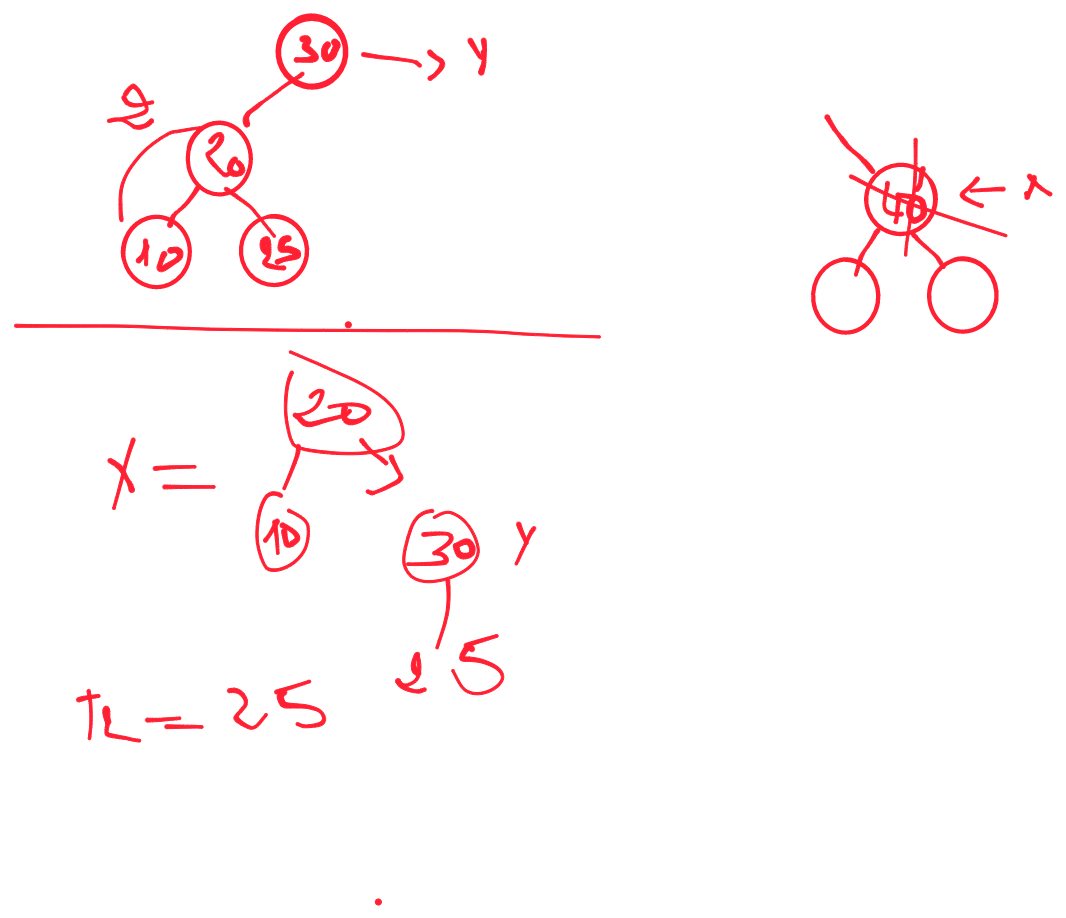 30 → y
20
10 25
40 ← x
20
x =
10 30 y
25
T2 = 25